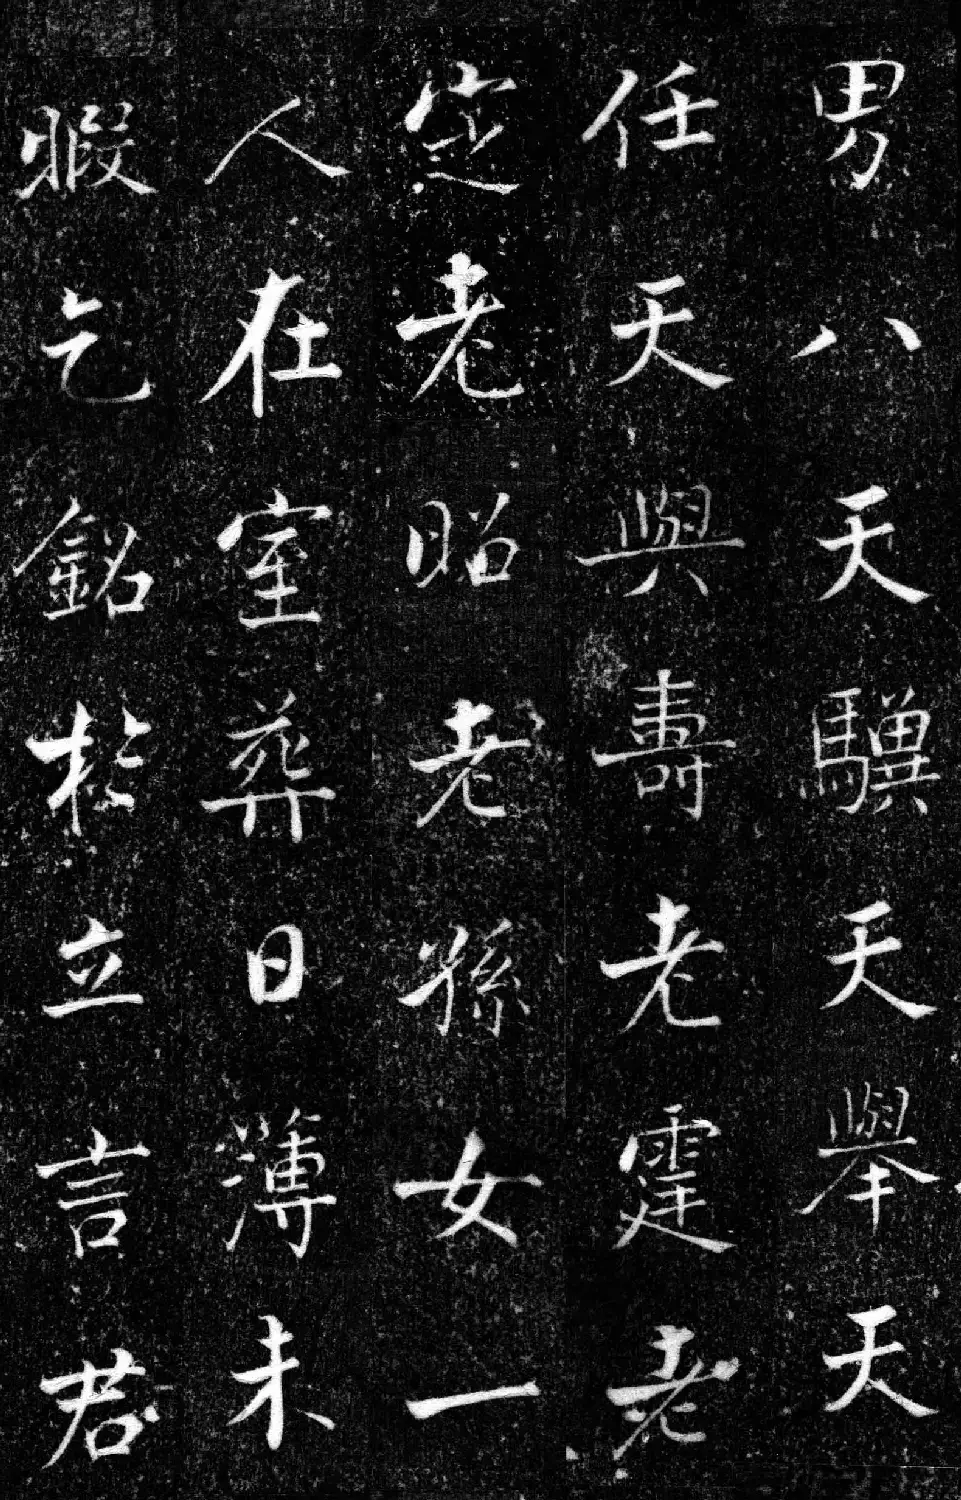 男八天驥天舉天
任天與壽老霆老
定老昭老孫女一
人在室葬日薄未
暇乞銘於立言君